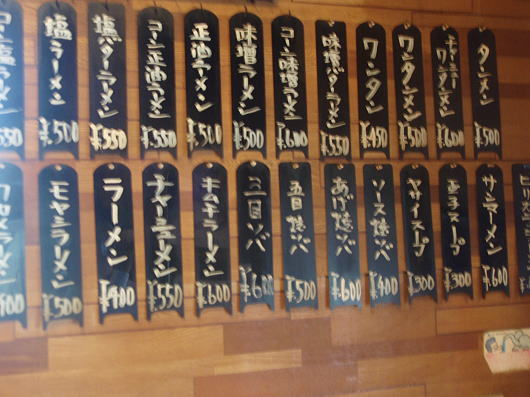 タンメン ¥500
チャーシューワンタンメン ¥600
ワンタンメン ¥500
ワンタン ¥450
味噌バターラーメン ¥550
コーン味噌ラーメン ¥600
味噌ラーメン ¥500
正油ラーメン ¥500
コーン正油ラーメン ¥550
塩バターラーメン ¥550
塩ラーメン ¥500
コーン塩ラーメン 550
サンラーメン ¥600
玉子スープ ¥300
ヤサイスープ ¥300
ソース焼ソバ ¥400
あげ焼ソバ ¥600
五目焼ソバ ¥500
五目ソバ
キムチラーメン ¥600
チャーシューメン ¥550
ラーメン ¥400
モヤシラーメン ¥500